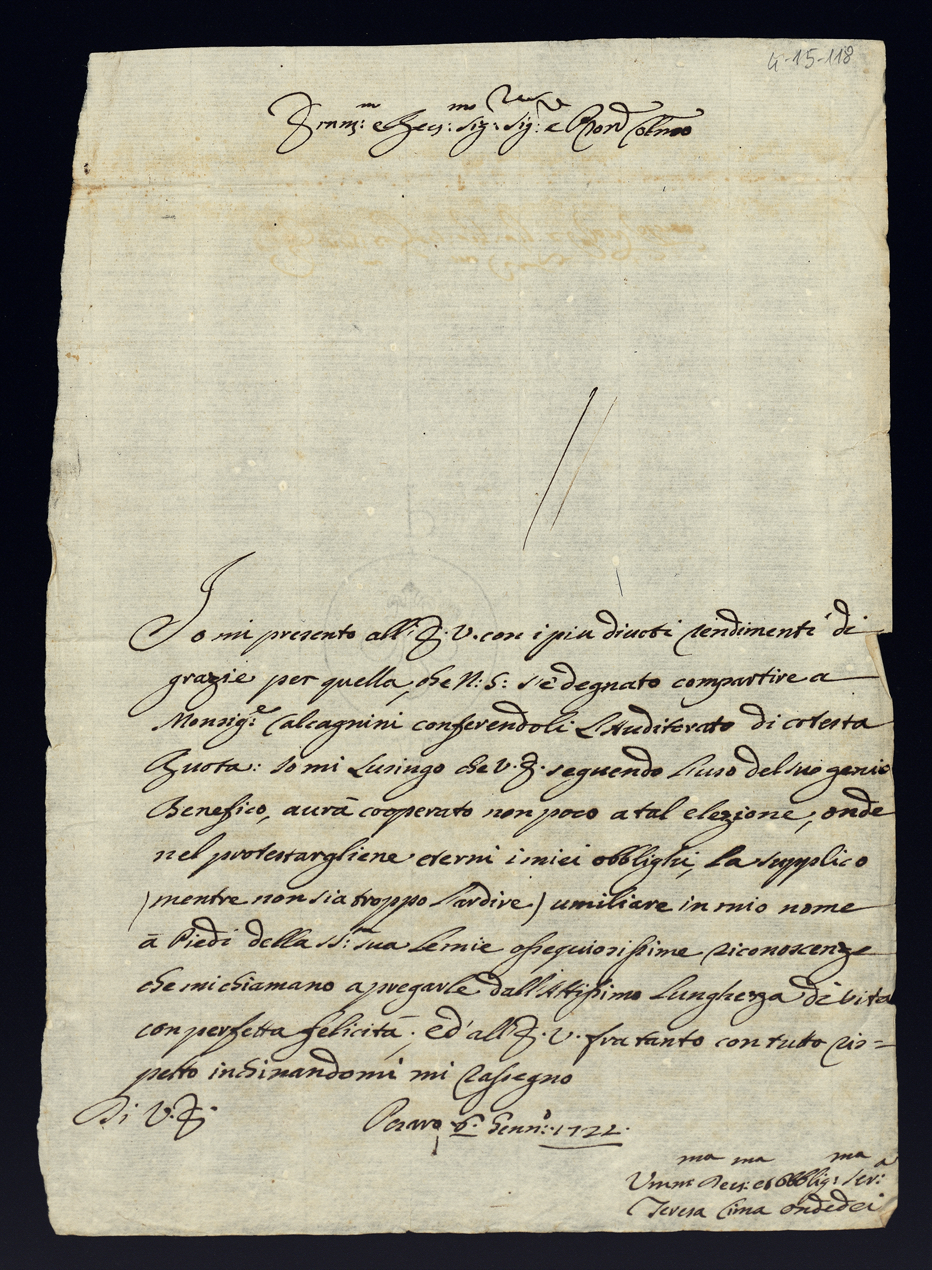 4-15-118
Emin:^m e Rev:^mo Sig: Sig: e Pron Colmo
Io mi presento all'E. V. con i piu divoti rendimenti di
grazie per quella, che N: S: s'è degnato compartire a
Monsig:^r Calcagnini conferendoli L'Auditorato di cotesta
Ruota: Io mi Lusingo che V. E. seguendo l'uso del suo genio
Benefico, aurà cooperato non poco a tal elezione, onde
nel protestargliene eterni i miei obblighi, la supplico
(mentre non sia troppo l'ardire) umiliare in mio nome
à Piedi della SS: sua le mie ossequiosissime riconoscenze
che mi chiamano a pregarle dall'Altissimo Lunghezza di vita
con perfetta felicità; ed all'E. V. fra tanto con tutto ris=
petto inchinandomi mi rassegno
Di V. E.
Pesaro 6. Genn:^o 1722.
Umm:^ma Dev:^ma et obblig:^ma ser:^a
Teresa Cima ondedei